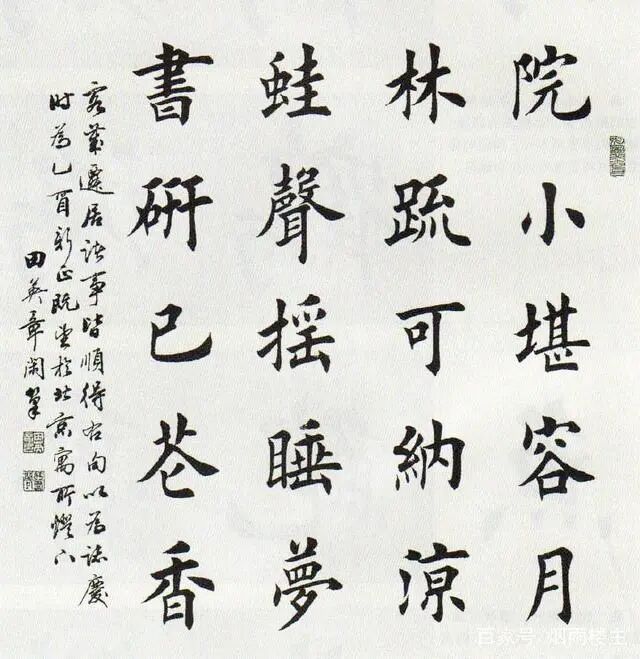 院小堪容月
林疏可納涼
蛙聲摇睡夢
書硏已芲香
客歲遷居諸事皆順得右句以為誌慶
时為乙酉新正既望於北京寓所燈下
田英章閑筆
百家号/烟雨楼主